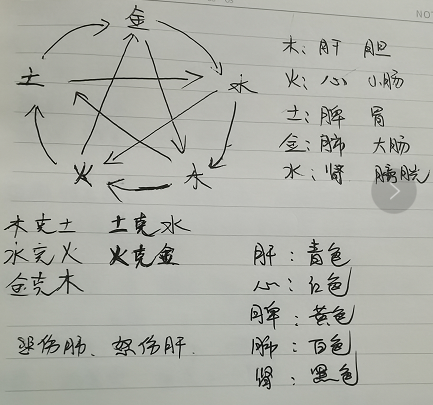 NOT
金
土
水
火
木
木：肝 胆
火：心 小肠
土：脾 胃
金：肺 大肠
水：肾 膀胱
木克土 土克水
水克火 火克金
金克木
悲伤肺、怒伤肝.
肝：青色
心：红色
脾：黄色
肺：白色
肾：黑色